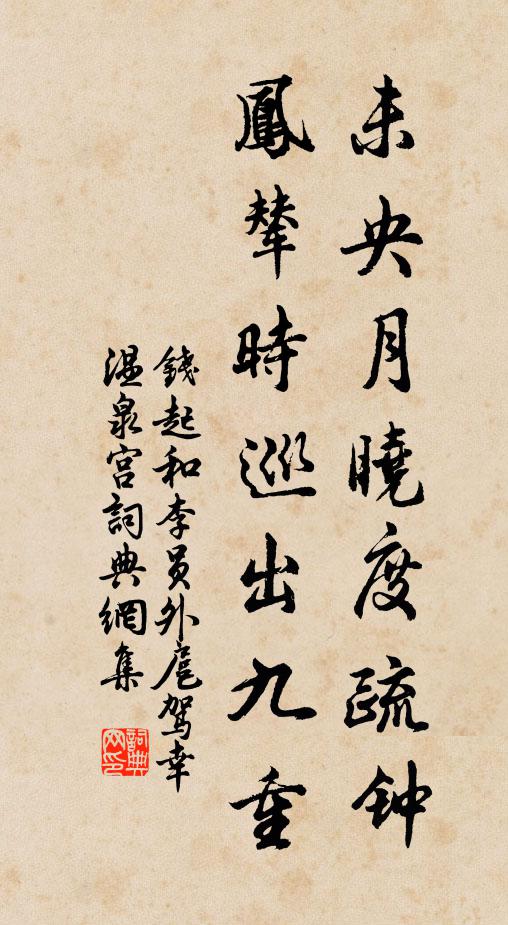 未央月曉度疏钟
鳳輦時巡出九重
錢起和李員外扈駕幸
温泉宫詞典網集
詞典網印